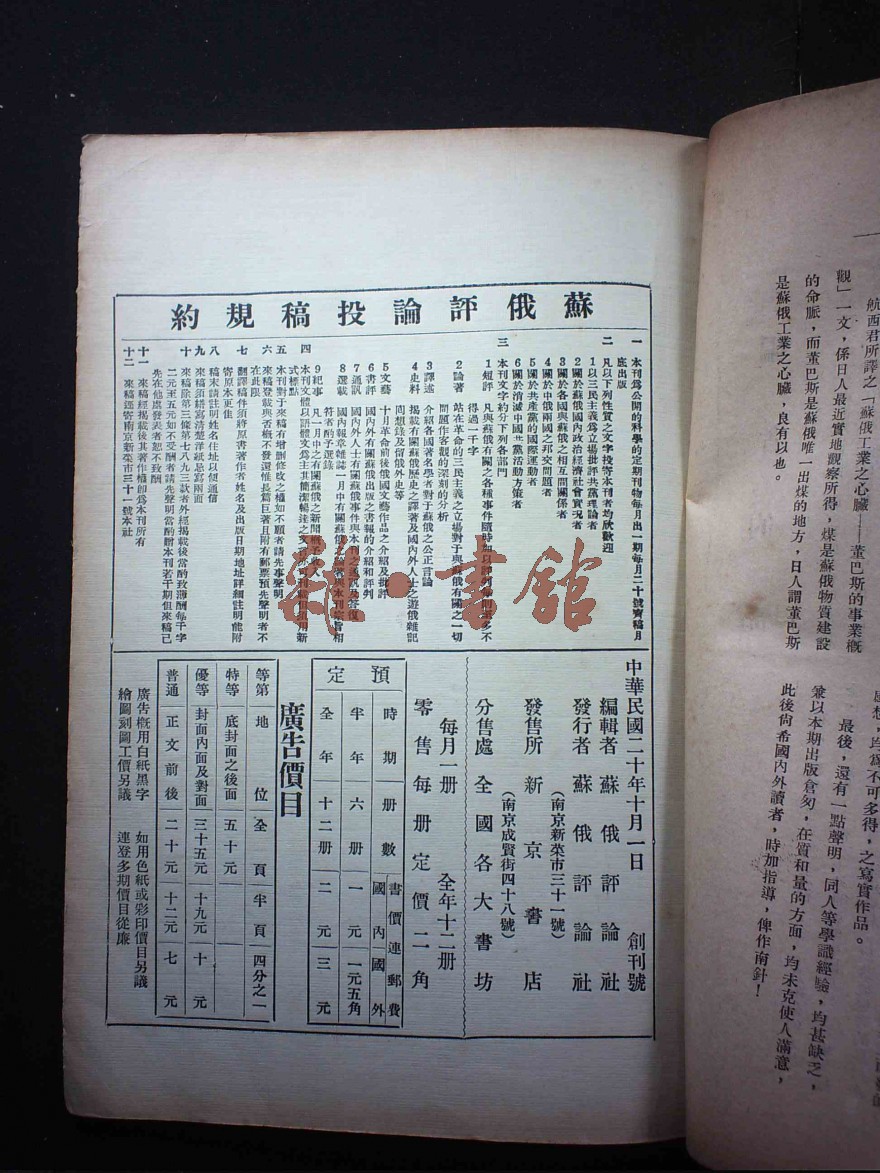 觀」一文，係日人最近實地觀察所得，煤是蘇俄物質建設
的命脈，而董巴斯是蘇俄唯一出煤的地方，日人謂董巴斯
是蘇俄工業之心臟，良有以也。
最後，還有一點聲明，同人等學識經驗，均甚缺乏，
兼以本期出版倉匆，在質和量的方面，均未克使人滿意，
此後尚希國內外讀者，時加指導，俾作南針！
蘇俄評論投稿規約
一 本刊爲公開的科學的定期刊物每月出一期每月二十號齊稿月
底出版
二 凡以下列性質之文字投寄本刊者均所歡迎
1以三民主義爲立場批評共黨理論者
2關於蘇俄國內政治經濟社會實現者
3關於各國與蘇俄之相互間關係者
4關於中俄兩國之邦交問題者
5關於共產黨的國際運動者
6關於消滅中國共黨活動方策者
三 本刊文字約分下列各部門
1短評 凡與蘇俄有關之各種事件隨時加以評判每則最多不
得過一千字
2論著 站在革命的三民主義之立場對于與蘇俄有關之一切
問題作客觀的深刻的分析
3譯述 介紹各國著名學者對于蘇俄之公正言論
4史料 揭載有關蘇俄歷史之譯著及國內外人士之遊俄雜記
周想錄及留俄外史等
5文藝 十月革命前後俄國文藝作品之介紹及批評
6書評 國內外有關蘇俄出版之書報的介紹和評判
7通訊 國內外人士有關蘇俄事件與本刊之通訊及答復
8選載 國內報章雜誌一月中有關蘇俄之論著與本刊宗旨相
符者酌予選錄
9紀事 凡一月中之有關蘇俄之新聞概予收入
四 本刊文體以語體文為主其簡潔暢達之文言亦可刊載但須用新
式標點
五 本刊對于來稿有增刪修改之權如不願者請先事聲明
六 來稿登載與否概不發還惟長篇巨著且附有郵票預先聲明者不
在此限
七 翻譯稿件須將原書著作者姓名及出版日期地址詳細註明能附
寄原本更佳
八 稿末請註明姓名住址以便通信
九 來稿須繕寫清楚洋紙忌寫兩面
十 來稿除第三條第七八九三款者外經揭載後當酌致薄酬每千字
二元至五元如不受酬者請先聲明當酌贈本刊若干期但來稿已
先在他處發表者恕不致酬
十一 來稿經揭載後其著作權即爲本刊所有
十二 來稿逕寄南京新菜市三十一號本社
中華民國二十年十月一日 創刊號
編輯者 蘇俄評論社
發行者 蘇俄評論社
(南京新菜市三十一號)
發售所 新京書店
(南京成賢街四十八號)
分售處 全國各大書坊
每月一册 全年十二册
零售每册定價二角
預定
時期 册數 書價連郵費
國內 國外
半年 六册 一元 一元五角
全年 十二册 二元 三元
廣告價目
等第 地位 全頁 半頁 四分之一
特等 底封面之後面 五十元
優等 封面內面及對面 三十五元 十九元 十元
普通 正文前後 二十元 十二元 七元
廣告概用白紙黑字 如用色紙或彩印價目另議
繪圖刻圖工價另議 連登多期價目從廉
雜·書館